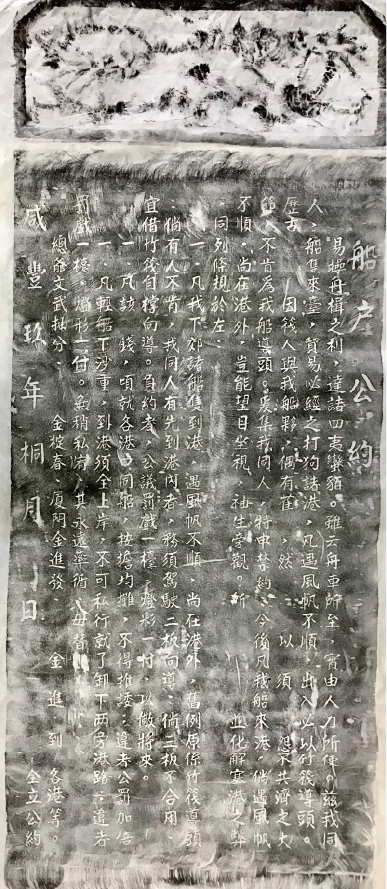 船戶公約
易操舟楫之利，達諸四夷蠻貊。雖云舟車所至 實由人力所使。茲我同
人，船隻來臺，貿易必經之打狗諸港，凡遇風帆不順，出入必以竹筏導頭。
歷古 因後人與我船夥，偶有 ，然 以 須 共濟之
人不肯為我船導頭。爰集我同人，特申禁約，今後凡我船來港，倘遇風帆
不順，尚在港外，豈能望日坐視 袖坐旁觀。 並化解塞港之弊
，同列條規於左：
一、凡我下郊諸船隻到港，遇風帆不順，尚在港外，舊例原係竹筏導頭
，倘有人不肯，我同人有先到港內者，務須駕駛二板向導；倘二板不合用，
宜借竹筏自撑向導。負約者，公議罰戲一檯，燈彩一付，以儆將來。
一、凡該 錢，項就各港口同船，按擔均攤，不得推諉；違者公罰加倍
一、凡輕船下沙重，到港須全上岸，不可私行就了卸下两旁港路；違者
罰戲一檯，燈彩一付。 私 ，其永遠 毋替
總爺文武抽分、 金捷春、廈門金進發 金 進 到 各港等。
咸豐玖年桐月 日 仝立公約